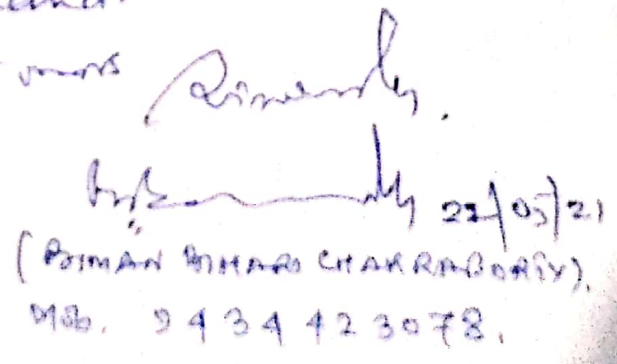 yours Sincerely.
22/05/21
(BIMAN BIHARI CHAKRABORTY).
Mob. 9434423078.